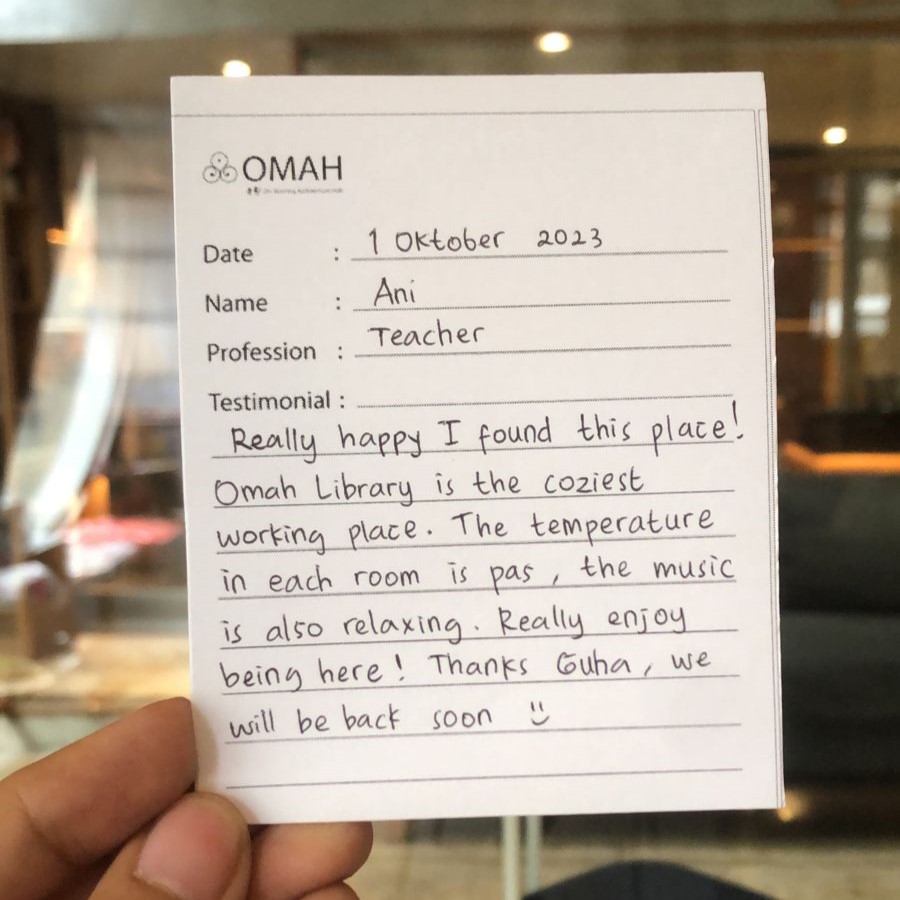 OMAH
Date : 1 Oktober 2023
Name : Ani
Profession : Teacher
Testimonial :
Really happy I found this place!
Omah Library is the coziest
working place. The temperature
in each room is pas, the music
is also relaxing. Really enjoy
being here! Thanks Guha, we
will be back soon